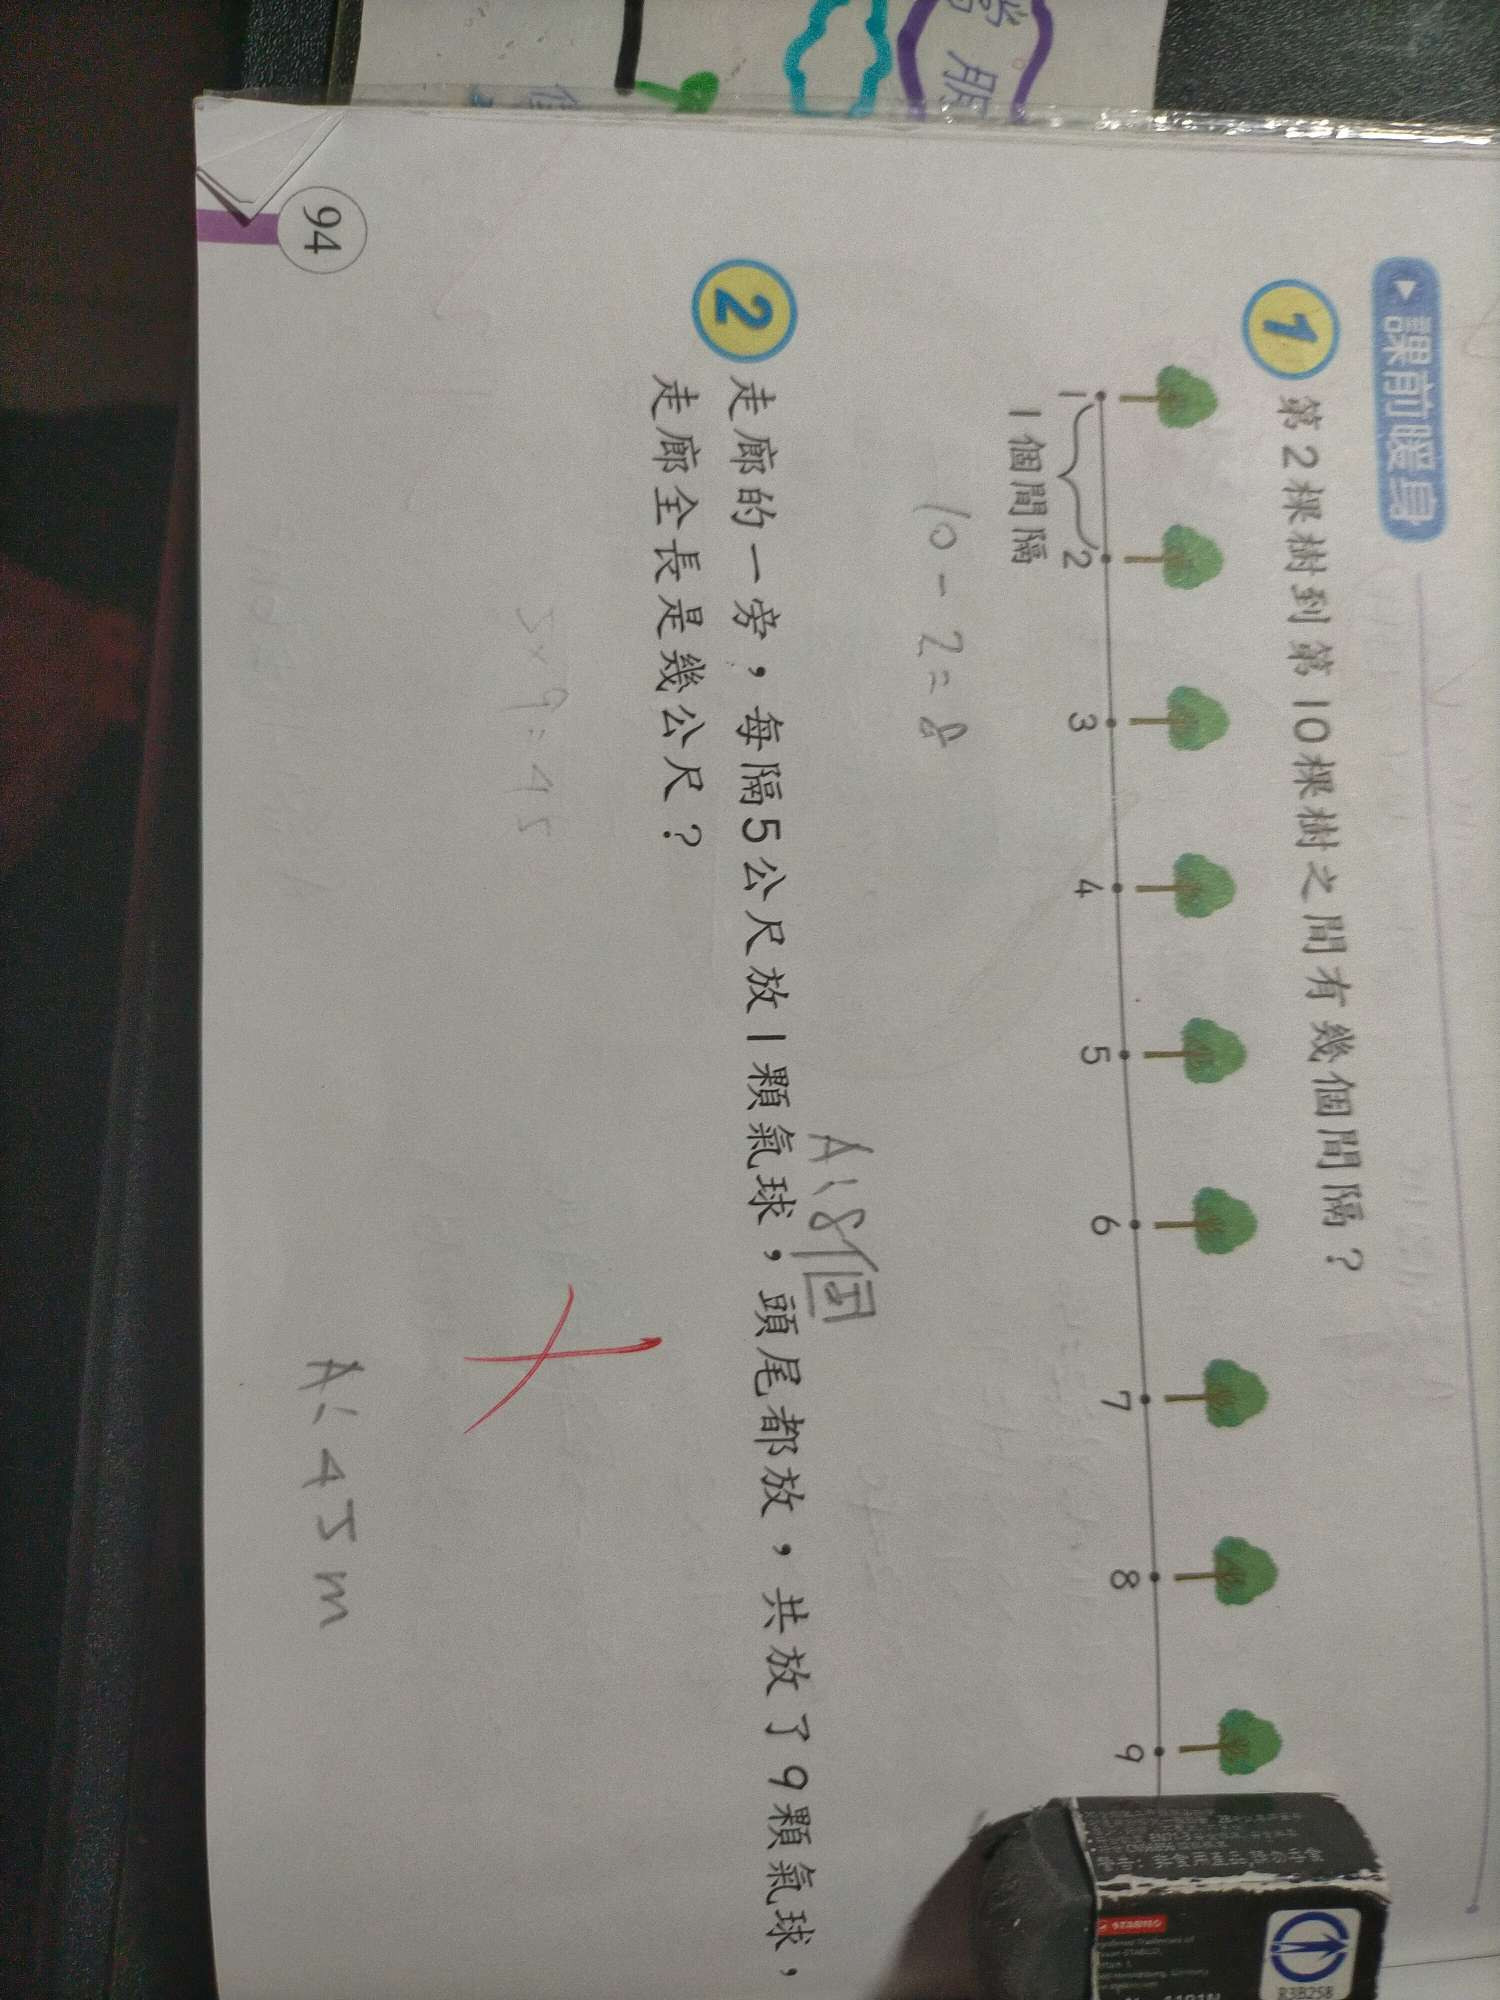 課前暖身
1 第2棵樹到第10棵樹之間有幾個間隔？
1 2 3 4 5 6 7 8 9
1個間隔
10-2=8
A:8個
2 走廊的一旁，每隔5公尺放1顆氣球，頭尾都放，共放了9顆氣球，
走廊全長是幾公尺？
5×9=45
A:45m
94
常用
警告：非食用產品請勿吞食
STABILO
R3B258